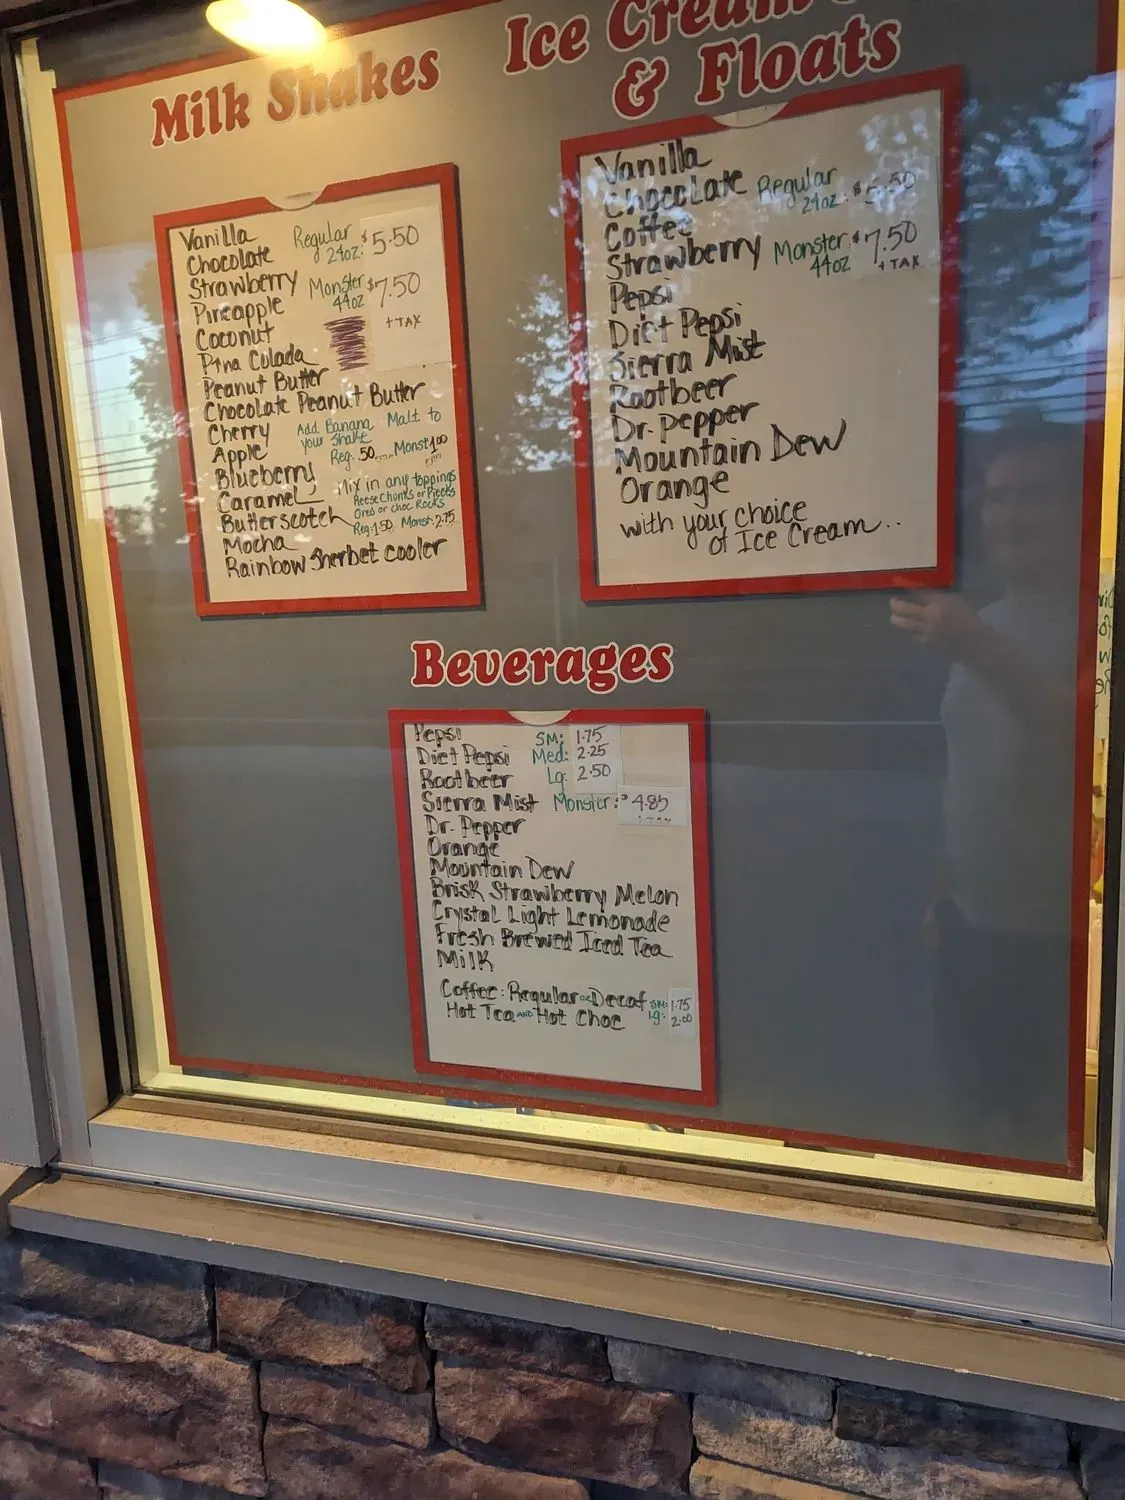 Milk Shakes
Vanilla
Chocolate
Strawberry
Pineapple
Coconut
Pina Colada
Peanut Butter
Chocolate Peanut Butter
Cherry
Apple
Blueberry
Caramel
Butterscotch
Mocha
Rainbow Sherbet cooler
Regular $5.50
24oz:
Monster $7.50
44oz
+ TAX
Add Banana Malt to
your Shake
Reg. .50 Monst 1.00
Mix in any toppings
Reese Chunks or Pieces
Oreo or choc Rocks
Reg: 1.50 Monst: 2.75
Ice Cream
& Floats
Vanilla
Chocolate
Coffee
Strawberry
Pepsi
Diet Pepsi
Sierra Mist
Rootbeer
Dr. Pepper
Mountain Dew
Orange
with your choice
of Ice Cream..
Regular
24oz: $5.50
Monster $7.50
44oz + TAX
Beverages
Pepsi
Diet Pepsi
Rootbeer
Sierra Mist
Dr. Pepper
Orange
Mountain Dew
Brisk Strawberry Melon
Crystal Light Lemonade
Fresh Brewed Iced Tea
Milk
SM: 1.75
Med: 2.25
Lg: 2.50
Monster: $4.85
Coffee: Regular or Decaf SM: 1.75
Hot Tea AND Hot Choc Lg: 2.00